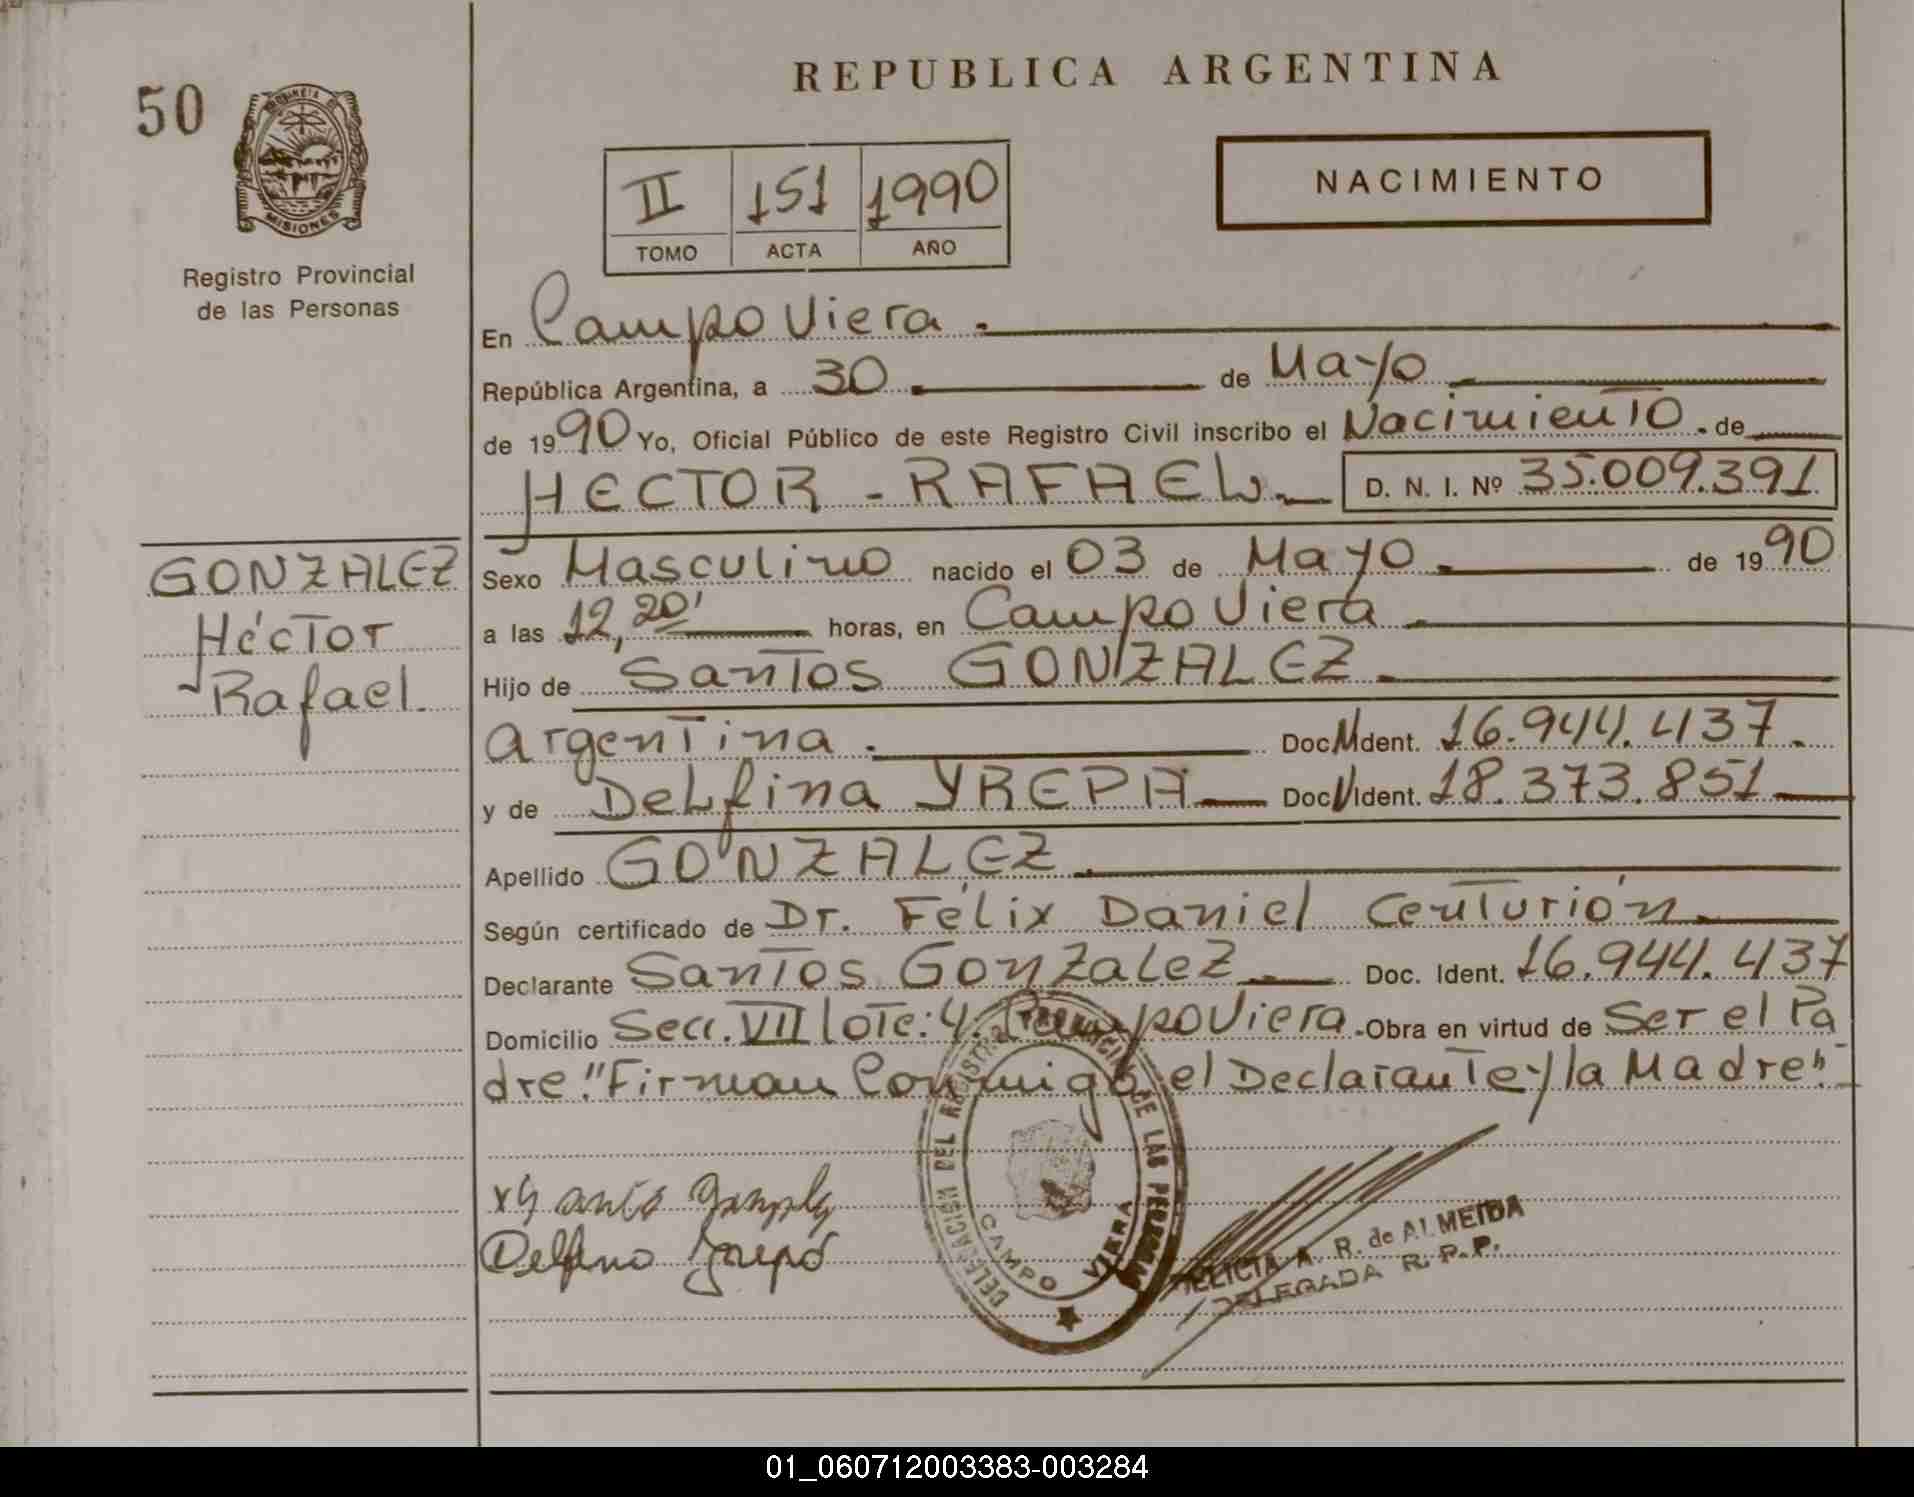 REPUBLICA ARGENTINA
50
PROVINCIA DE
MISIONES
Registro Provincial
de las Personas
NACIMIENTO
II 151 1990
TOMO ACTA AÑO
En Campo Viera.
República Argentina, a 30 de Mayo
de 1990 Yo, Oficial Público de este Registro Civil inscribo el Nacimiento. de
HECTOR - RAFAEL D. N. I. Nº 35.009.391
GONZALEZ
Héctor
Rafael.
Sexo Masculino nacido el 03 de Mayo de 1990
a las 12,20' horas, en Campo Viera
Hijo de Santos GONZALEZ
argentina. Doc. Ident. 16.944.437.
y de Delfina YREPA Doc. Ident. 18.373.851
Apellido GONZALEZ
Según certificado de Dr. Félix Daniel Centurión
Declarante Santos Gonzalez Doc. Ident. 16.944.437
Domicilio Secc. VII lote: 4. Campo Viera. Obra en virtud de Ser el Pa
dre. "Firman Conmigo el Declarante y la Madre".
DELEGACION DEL REGISTRO PROVINCIAL DE LAS PERSONAS
CAMPO VIERA
A. R. de ALMEIDA
DELEGADA R. P. P.
01_060712003383-003284